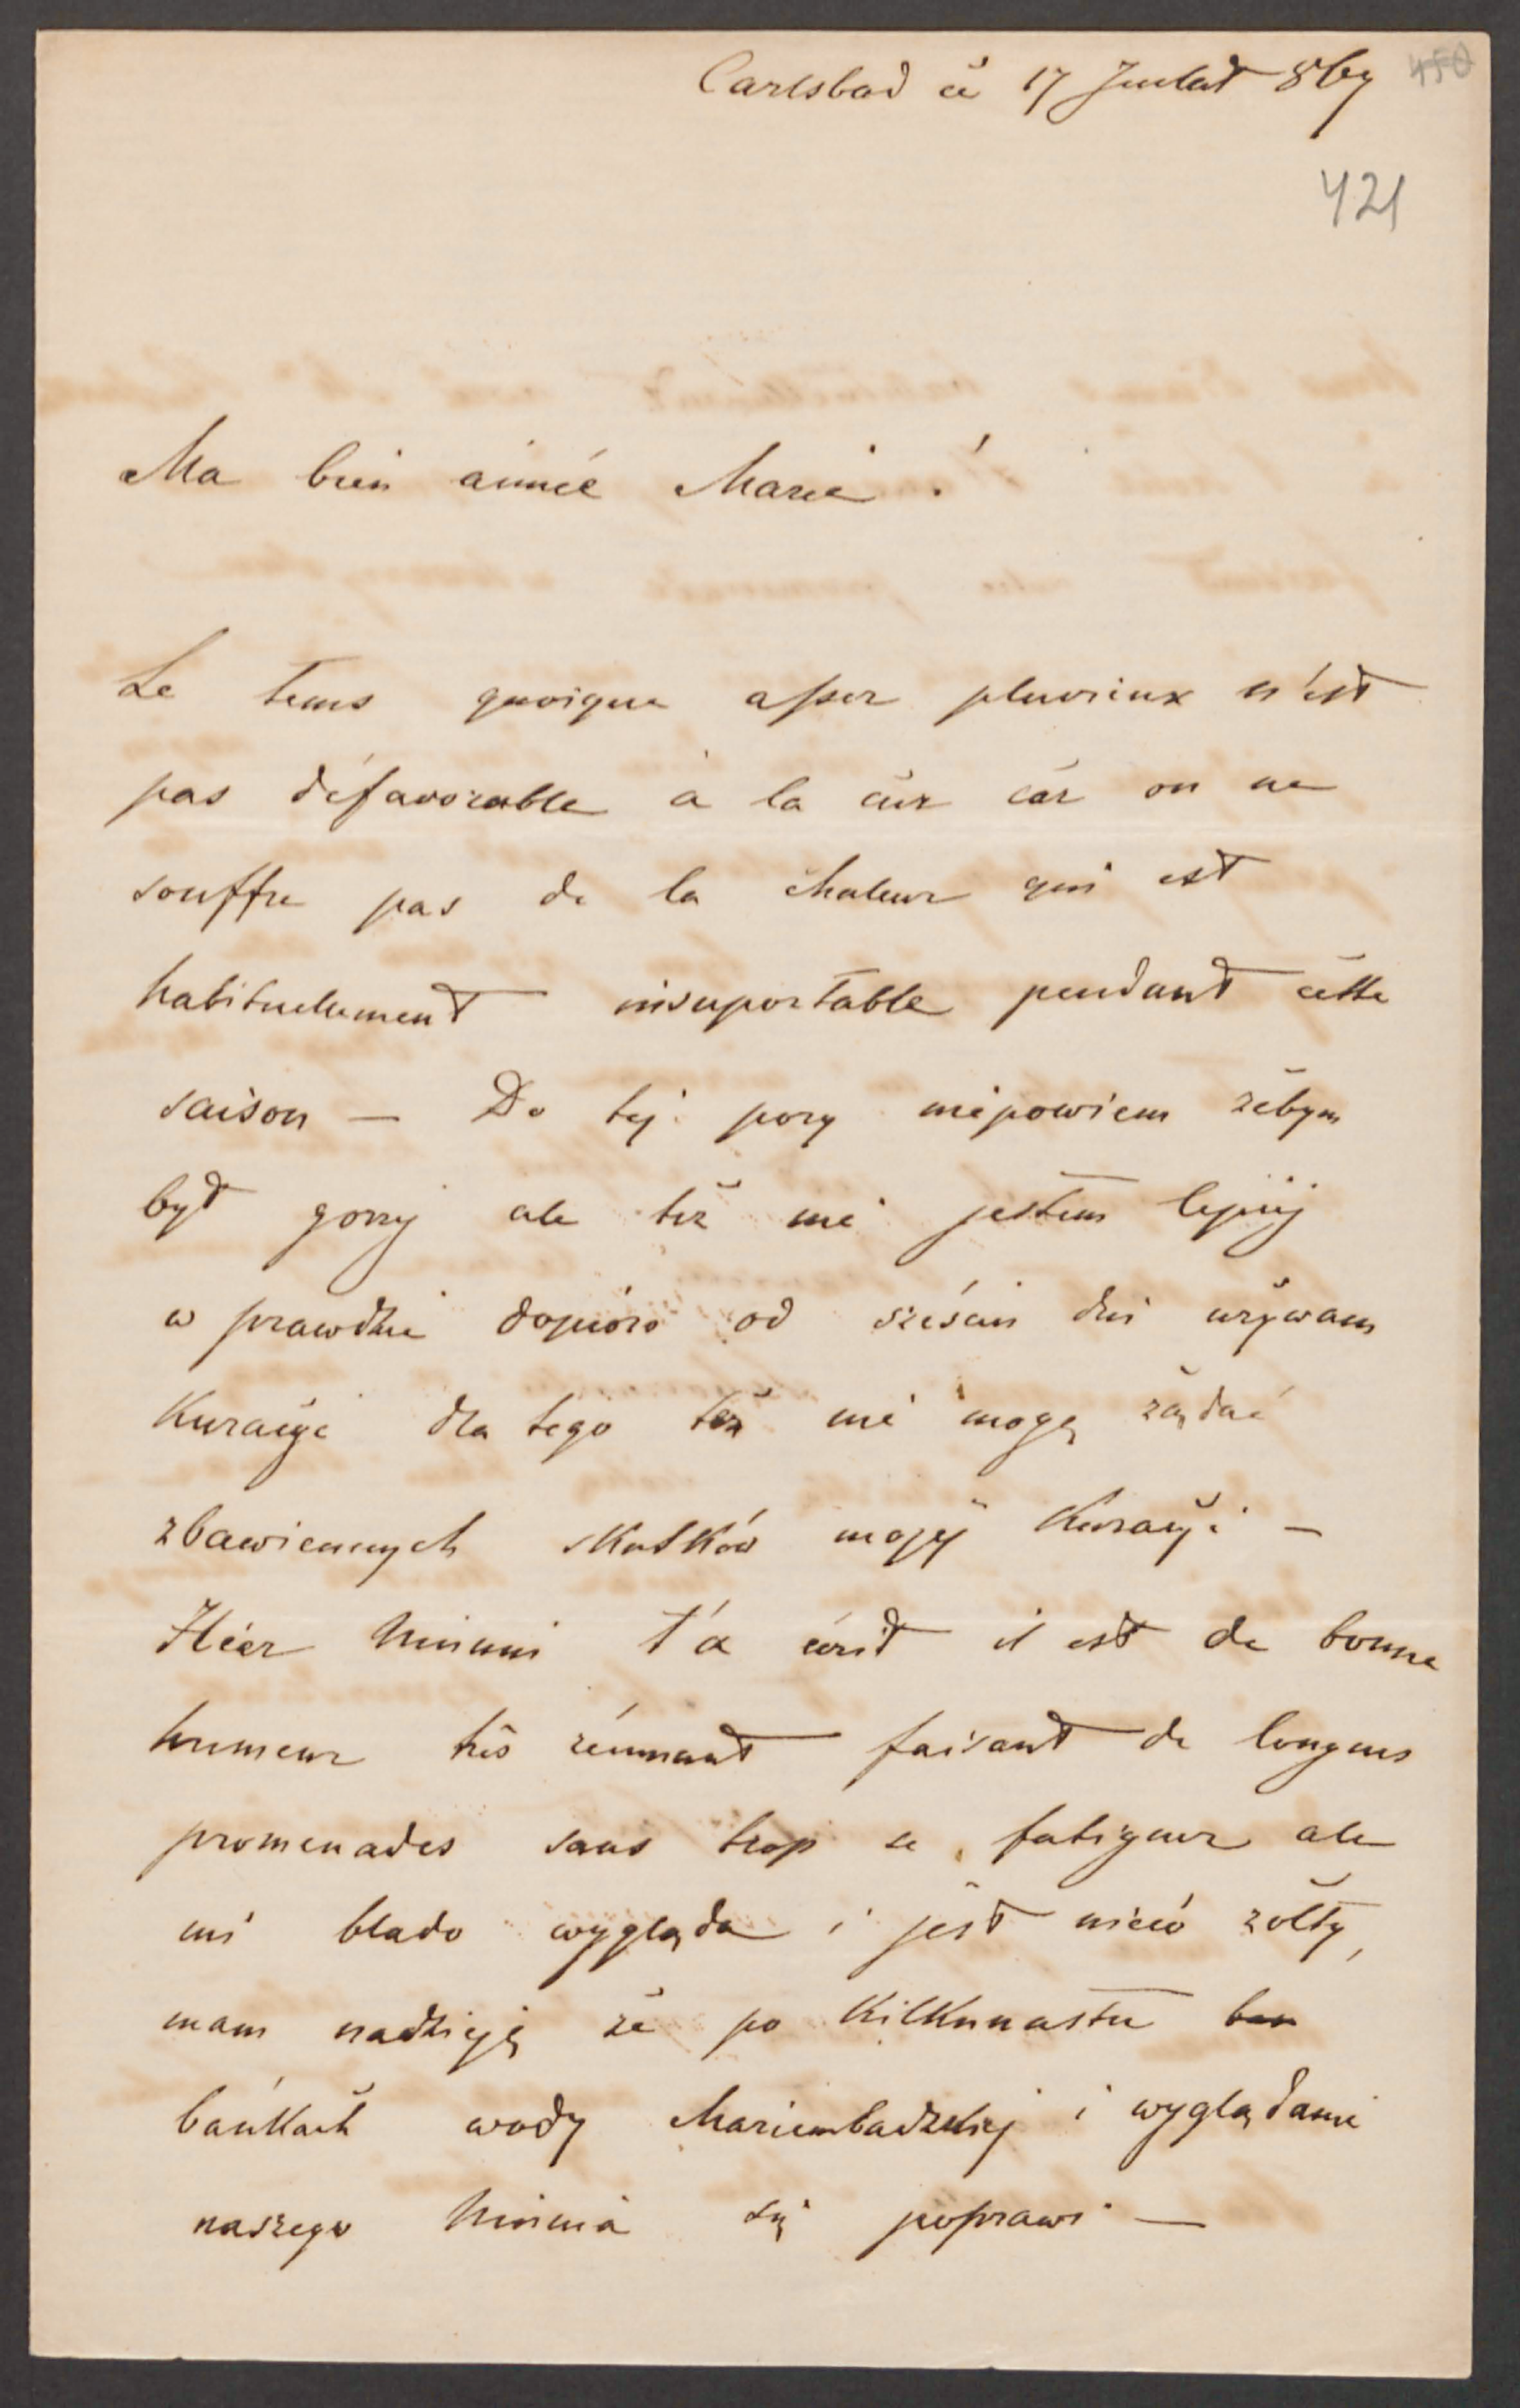 Carlsbad ce 17 Juillet 867
450
421
Ma bien aimée Marie !
Le tems quoique assez pluvieux n'est
pas défavorable à la cur car on ne
souffre pas de la chaleur qui est
habituelement insuportable pendant cette
saison — Do tej pory niepowiem żebym
był gorzej ale też nie jestem lepiej
w prawdzie dopióro od sześciu dni używam
Kuracyi dla tego też nie mogę żądać
zbawiennych skutków mojej Kuracyi —
Hier t'a écrit il est de bonne
humeur très rémuant faisant de longues
promenades sans trop se fatiguer ale
mi blado wygląda i jest nieco żółty,
mam nadzieję że po Kilkunastu
bańkach wody Marienbadzkiej i wyglądanie
naszego się poprawi —